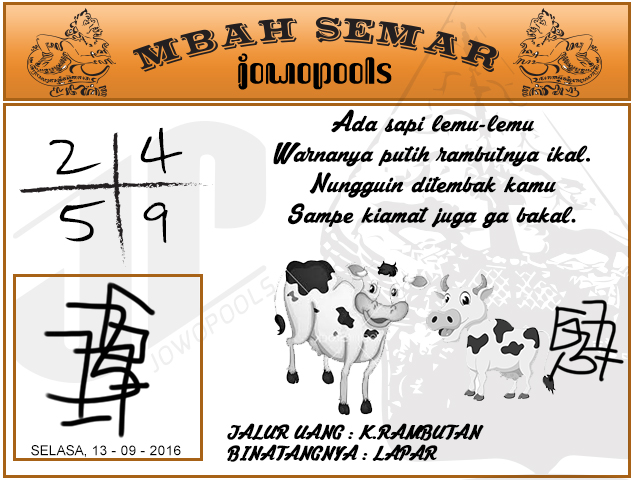 MBAH SEMAR
jowopools
Ada sapi lemu-lemu
Warnanya putih rambutnya ikal.
Nungguin ditembak kamu
Sampe kiamat juga ga bakal.
2 4
5 9
JOWOPOOLS
SELASA, 13 - 09 - 2016
JALUR UANG : K.RAMBUTAN
BINATANGNYA : LAPAR